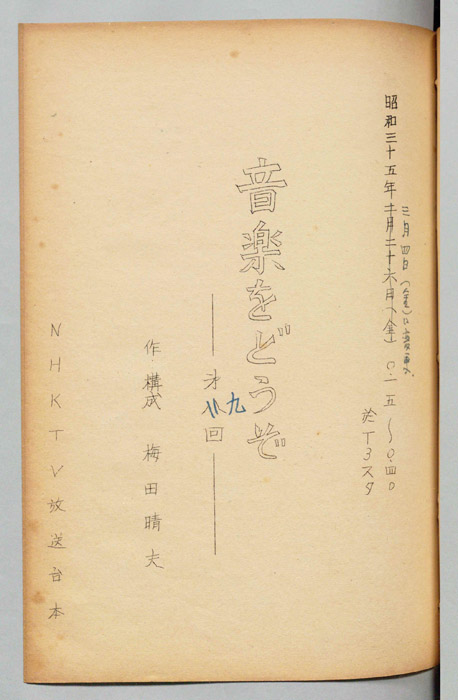 三月四日(金)に変更
昭和三十五年二月二十六日(金) 0.一五〜0.四0
於T3スタ
音楽をどうぞ
——才九回——
作構成 梅田晴夫
NHKTV放送台本